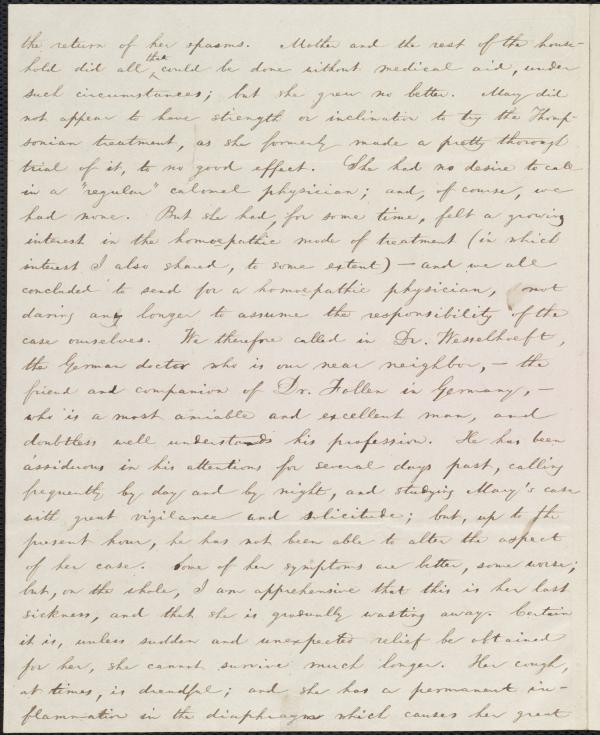 the return of her spasms. Mother and the rest of the house-
hold did all that could be done without medical aid, under
such circumstances; but she grew no better. Mary did
not appear to have strength or inclination to try the Thomp-
sonian treatment, as she formerly made a pretty thorough
trial of it, to no good effect. She had no desire to call
in a "regular" calomel physician; and, of course, we
had none. But she had, for some time, felt a growing
interest in the homœopathic mode of treatment (in which
interest I also shared, to some extent) — and we all
concluded to send for a homœopathic physician, not
daring any longer to assume the responsibility of the
case ourselves. We therefore called in Dr. Wesselhoeft,
the German doctor who is our near neighbor, — the
friend and companion of Dr. Follen in Germany, —
who is a most amiable and excellent man, and
doubtless well understands his profession. He has been
assiduous in his attentions for several days past, calling
frequently by day and by night, and studying Mary's case
with great vigilance and solicitude; but, up to the
present hour, he has not been able to alter the aspect
of her case. Some of her symptoms are better, some worse;
but, on the whole, I am apprehensive that this is her last
sickness, and that she is gradually wasting away. Certain
it is, unless sudden and unexpected relief be obtained
for her, she cannot survive much longer. Her cough,
at times, is dreadful; and she has a permanent in-
flammation in the diaphragm which causes her great